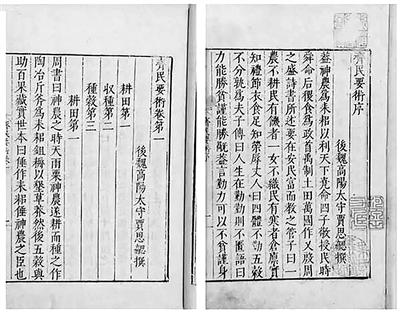 齊民要術序
後魏高陽太守賈思勰撰
蓋神農為耒耜以利天下堯命四子敬授民時
舜命后稷食為政首禹制土田萬國作乂殷周
之盛詩書所述要在安民富而教之管子曰一
農不耕民有饑者一女不織民有寒者倉廩實
知禮節衣食足知榮辱丈人曰四體不勤五穀
不分孰為夫子傳曰人生在勤勤則不匱語曰
力能勝貧謹能勝禍蓋言勤力可以不貧謹身
齊民要術卷第一
後魏高陽太守賈思勰撰
耕田第一
收種第二
種穀第三
耕田第一
周書曰神農之時天雨粟神農遂耕而種之作
陶冶斤斧為耒耜鉏耨以墾草莽然後五穀興
助百果藏實世本曰倕作耒耜倕神農之臣也